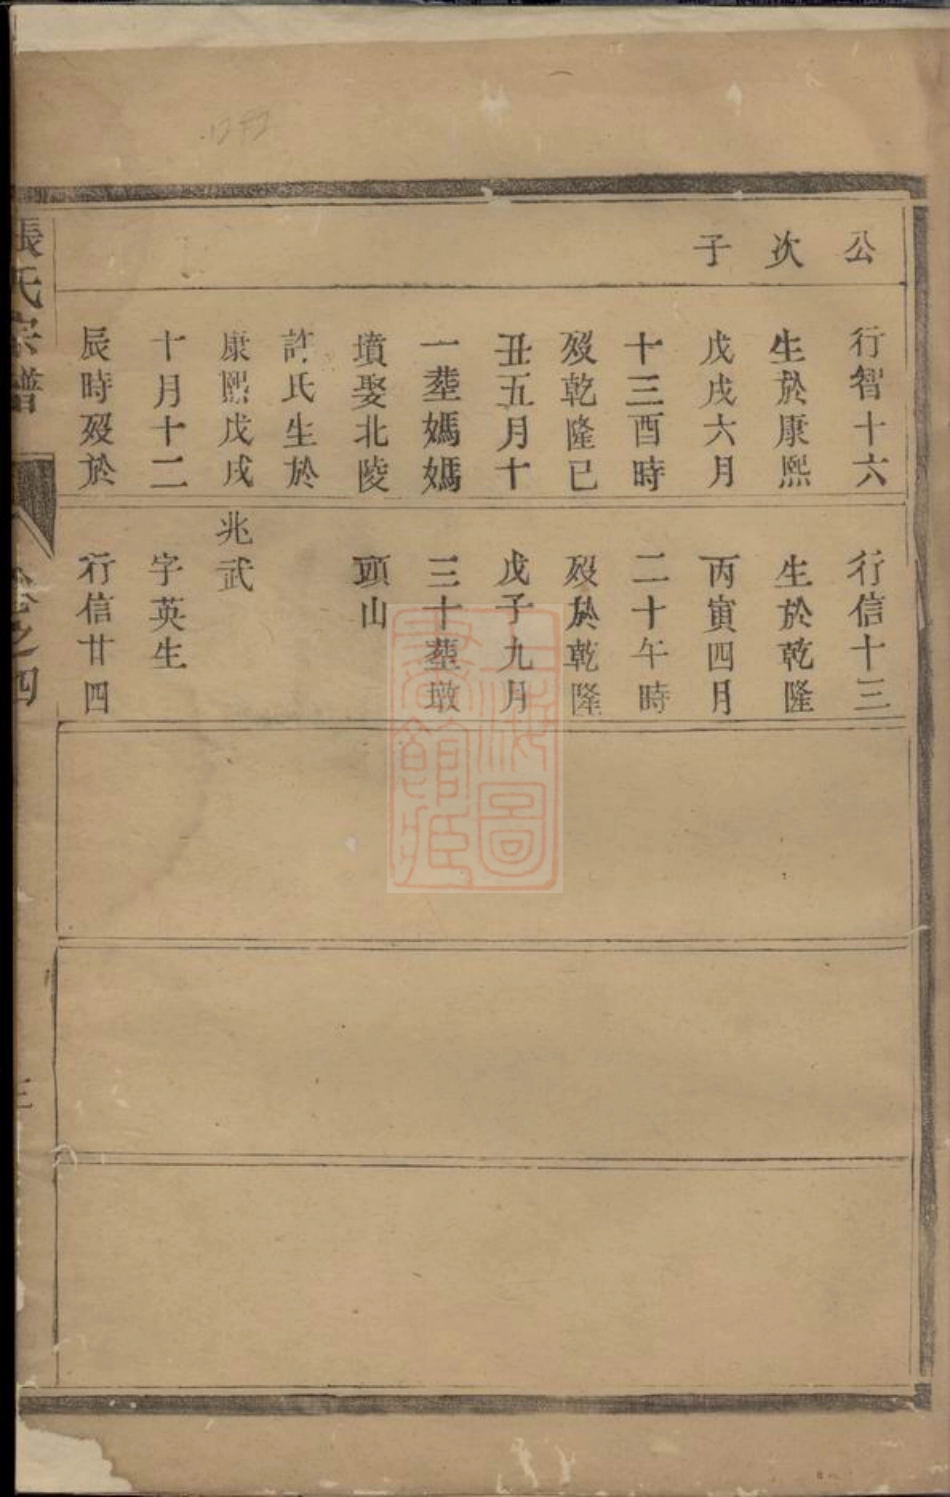 公
次
子
行智十六
生於康熙
戊戌六月
十三酉時
歿乾隆已
丑五月十
一塟媽媽
墳娶北陵
許氏生於
康熙戊戌
十月十二
辰時歿於
行信十三
生於乾隆
丙寅四月
二十午時
歿於乾隆
戊子九月
三十塟墩
頭山
兆武
字英生
行信廿四
張氏宗譜
卷之四
三
上海圖
書館藏